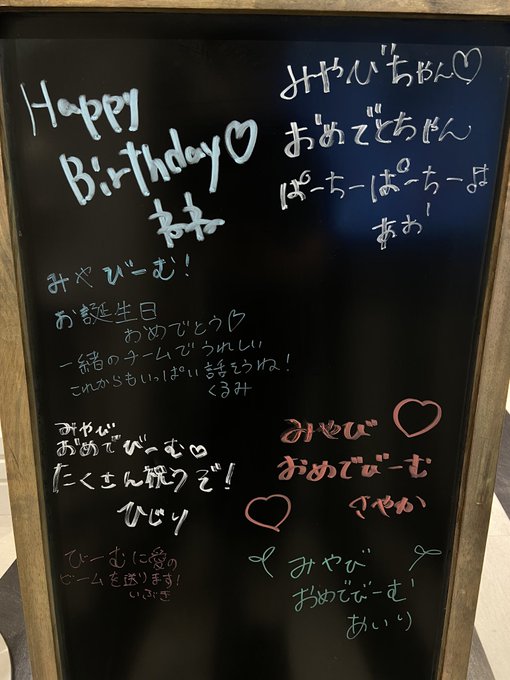 Happy
Birthday♡
ねね
みやびちゃん♡
おめでとちゃん
ぱーちーぱーちーよ
あお
みやびーむ!
お誕生日
おめでとう♡
一緒のチームでうれしい
これからもいっぱい話そうね!
くるみ
みやび
おめでびーむ♡
たくさん祝うぞ!
ひじり
みやび♡
おめでびーむ
さやか
びーむに愛の
ビームを送ります!
いぶき
みやび
おめでびーむ
あいり